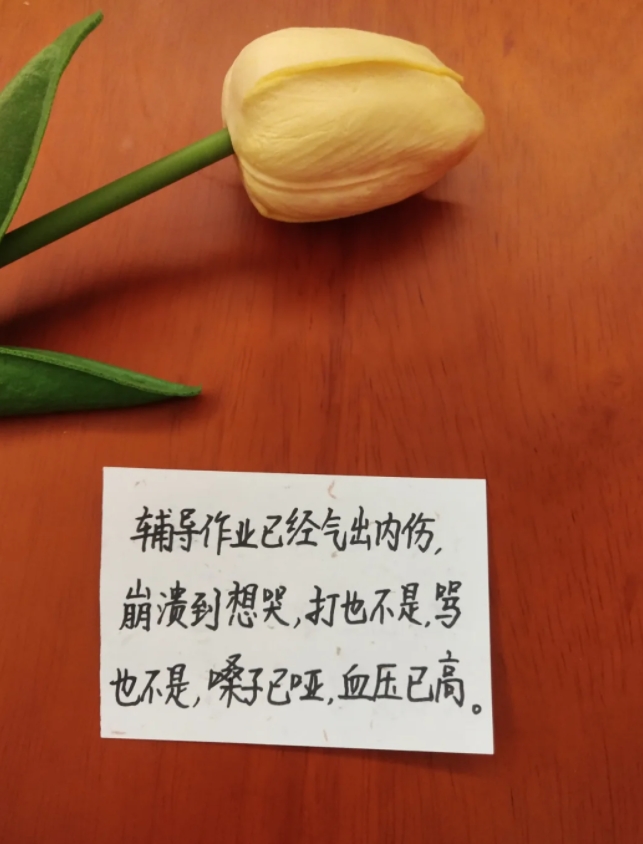 辅导作业已经气出内伤,
崩溃到想哭,打也不是,骂
也不是,嗓子已哑,血压已高。